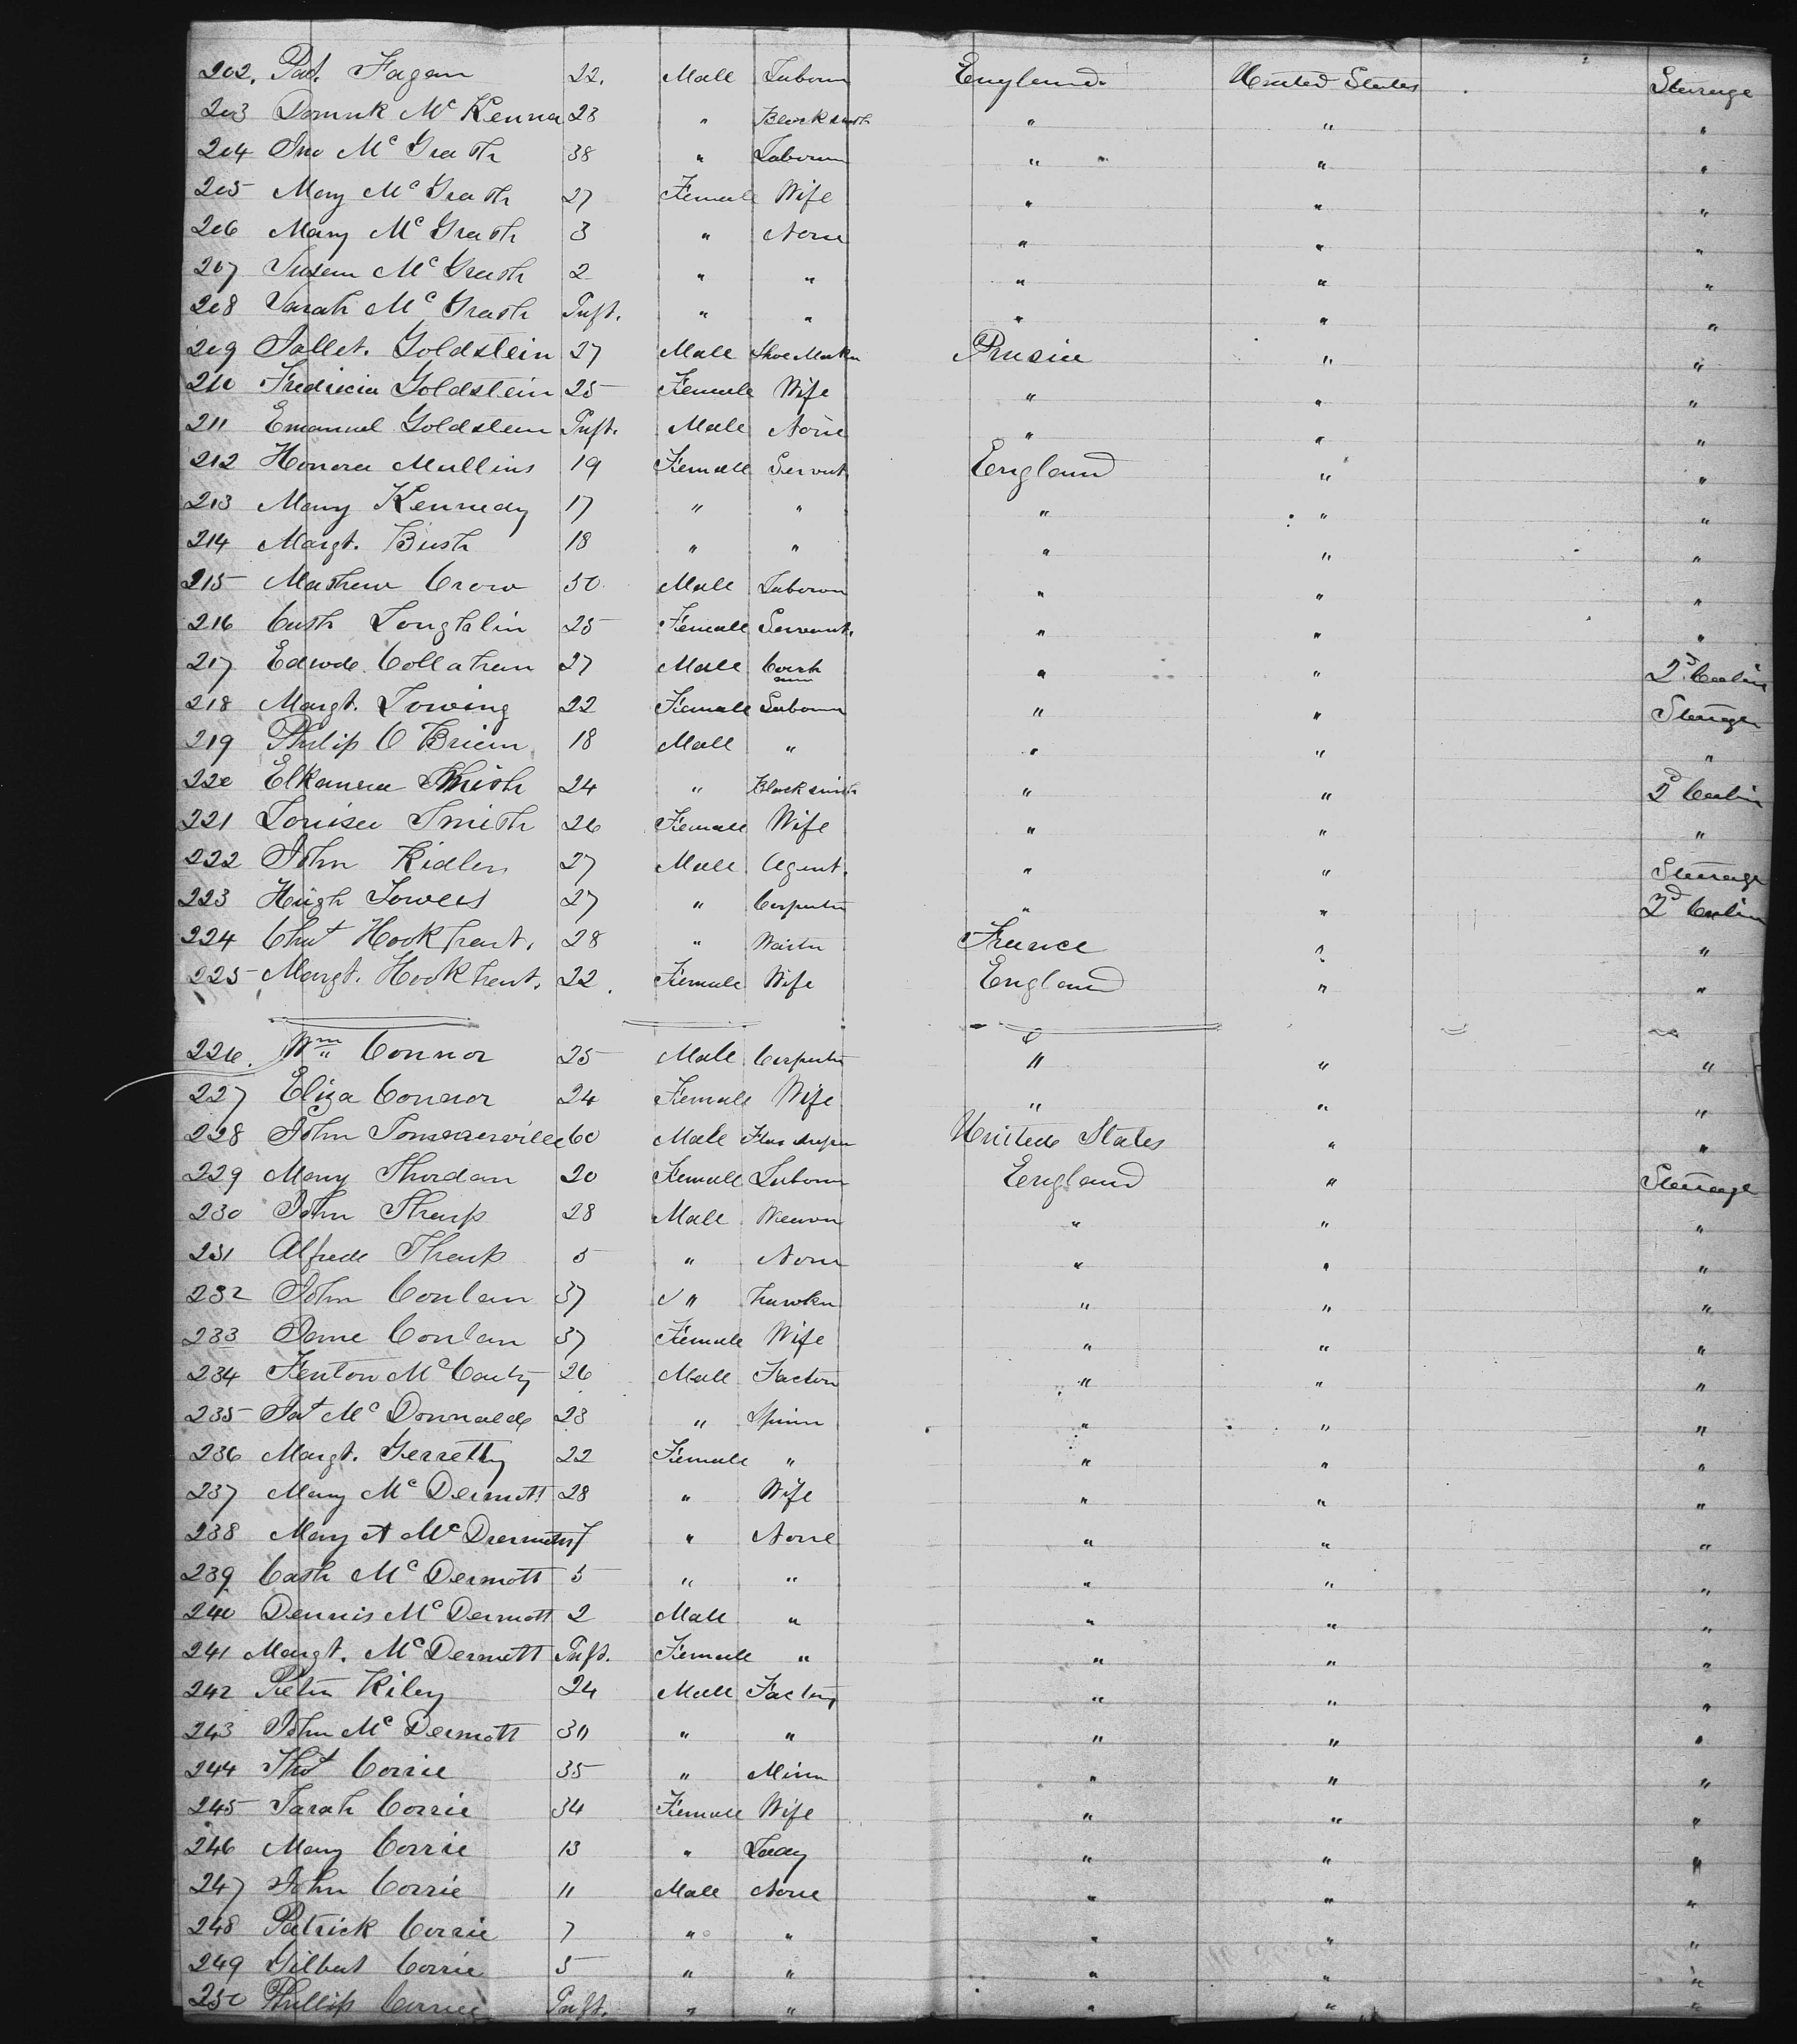 202. Pat. Fagan 22. Male Labourer England. United States Steerage
203 Domnk McKenna 23 " Blacksmith " " "
204 Jno McGrath 38 " Labourer " " "
205 Mary McGrath 27 Female Wife " " "
206 Mary McGrath 3 " None " " "
207 Susan McGrath 2 " " " " "
208 Sarah McGrath Inft. " " " " "
209 Goldstein 27 Male Shoe Maker Prusia " "
210 Goldstein 25 Female Wife " " "
211 Emanuel Goldstein Inft. Male None " " "
212 Honora Mullins 19 Female Servnt. England " "
213 Mary Kennedy 17 " " " " "
214 Margt. Bush 18 " " " " "
215 Mathew Crow 30 Male Labourer " " "
216 Cath Loughlin 25 Female Servant. " " "
217 Edwd. Collahan 27 Male " " 2d Cabin
218 Margt. Towing 22 Female Labourer " " Steerage
219 Philip O Brien 18 Male " " " "
220 Elkanea Smith 24 " Blacksmith " " 2d Cabin
221 Louisa Smith 26 Female Wife " " "
222 John Ridler 27 Male Agent. " " Steerage
223 Hugh 27 " Carpenter " " 2d Cabin
224 28 " Waiter France " "
225 Margt. 22. Female Wife England " "
226. Wm Connor 25 Male Carpenter " " "
227 Eliza Connor 24 Female Wife " " "
228 John 60 Male United States " "
229 Mary 20 Female Labourer England " Steerage
230 John Sharp 28 Male Weaver " " "
231 Alfred Sharp 5 " None " " "
232 John Conlan 37 " hawker " " "
233 Jane Conlan 37 Female Wife " " "
234 Fenton McCarty 26 Male Factory " " "
235 Pat McDonnald 23 " Spinner " " "
236 Margt. Gerretty 22 Female " " " "
237 Mary McDermott 28 " Wife " " "
238 Mary A McDermott 7 " None " " "
239 Cath McDermott 5 " " " " "
240 Dennis McDermott 2 Male " " " "
241 Margt. McDermott Inft. Female " " " "
242 Peter Riley 24 Male Factory " " "
243 John McDermott 30 " " " " "
244 Thos Corrie 35 " Miner " " "
245 Sarah Corrie 34 Female Wife " " "
246 Mary Corrie 13 " Lady " " "
247 John Corrie 11 Male None " " "
248 Patrick Corrie 7 " " " " "
249 Gilbert Corrie 5 " " " " "
250 Phillip Corrie Inft. " " " " "